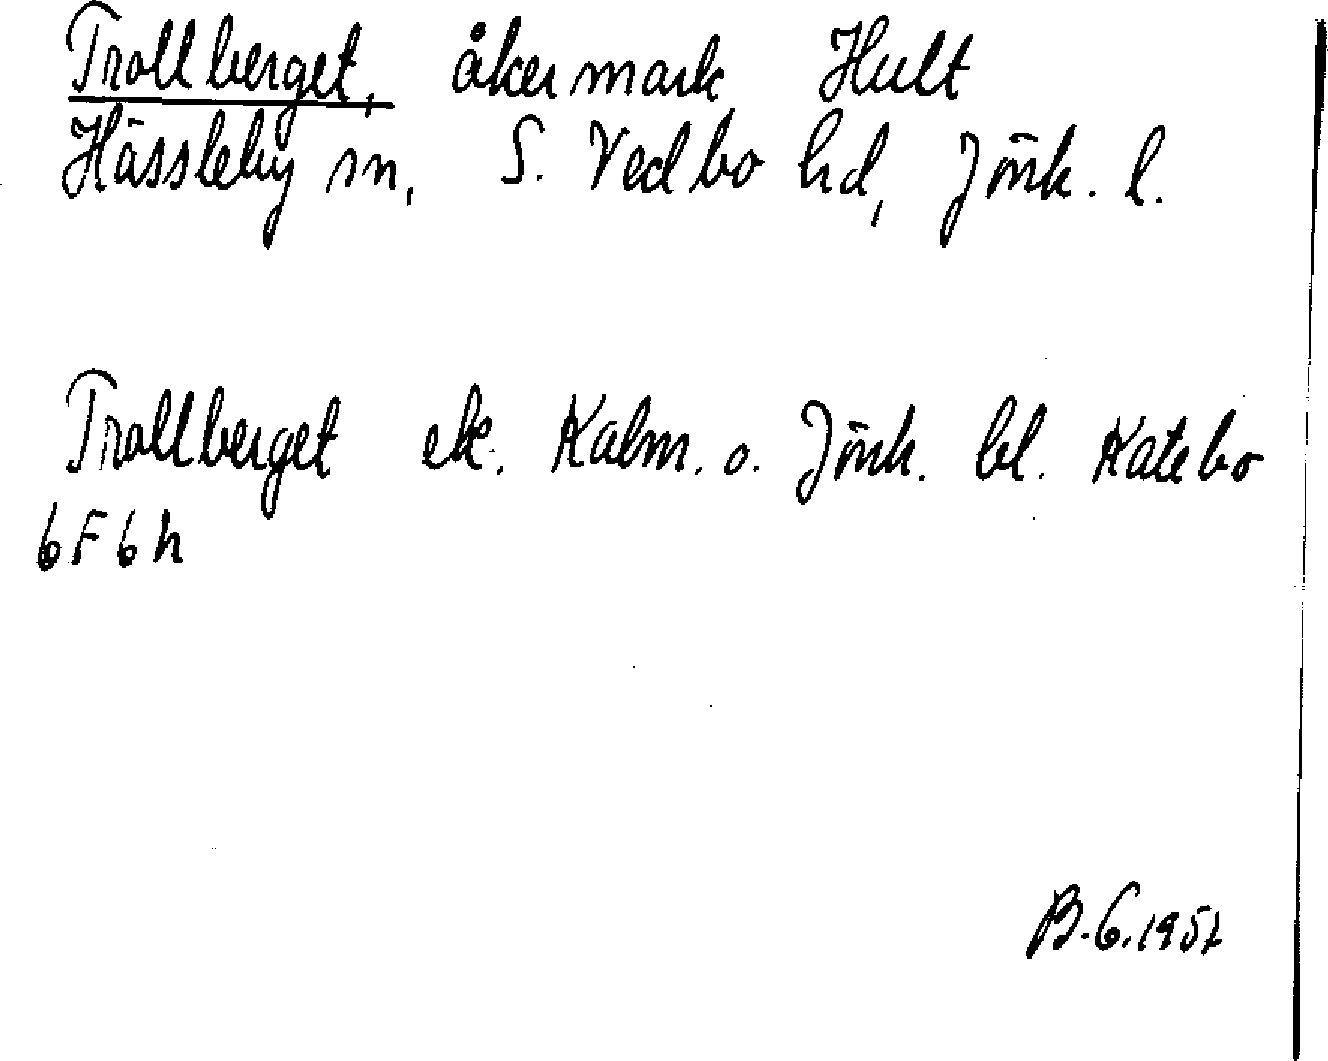 Trollberget, åkermark Hult
Hässleby sn, S. Vedbo hd, Jönk. l.
Trollberget ek. Kalm. o. Jönk. bl. Katebo
6F6h
B.G. 1957